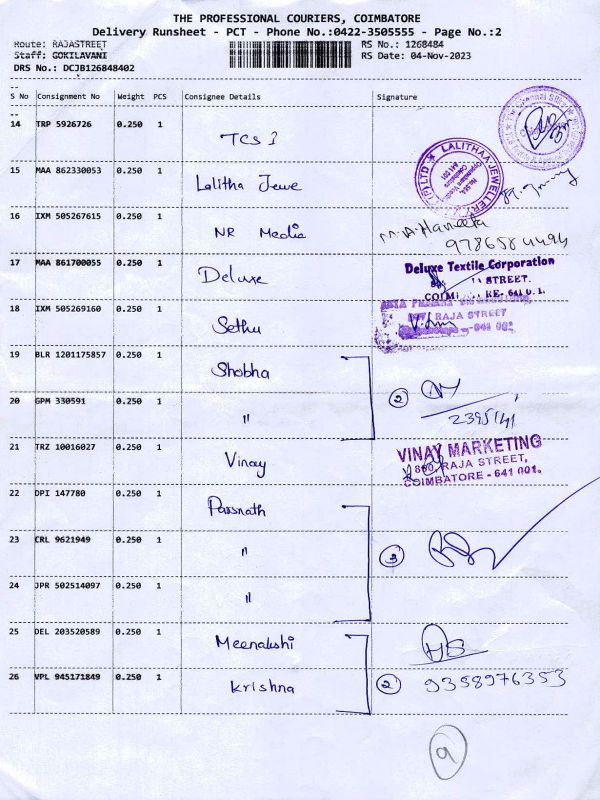 THE PROFESSIONAL COURIERS, COIMBATORE
Delivery Runsheet - PCT - Phone No.:0422-3505555 - Page No.:2
Route: RAJASTREET RS No.: 1268484
Staff: GOKILAVANI RS Date: 04-Nov-2023
DRS No.: DCJB126848402
--
S No Consignment No Weight PCS Consignee Details Signature
--
14 TRP 5926726 0.250 1 TCS
15 MAA 862330053 0.250 1 Lalitha Jewe LALITHAA JEWELLERY
16 IXM 505267615 0.250 1 NR Media M.A. Haneefa
17 MAA 861700055 0.250 1 Deluxe Deluxe Textile Corporation
STREET.
18 IXM 505269160 0.250 1 Sethu RAJA STREET
19 BLR 1201175857 0.250 1 Shobha
20 GPM 330591 0.250 1 " 2
21 TRZ 10016027 0.250 1 Vinay VINAY MARKETING
RAJA STREET,
COIMBATORE - 641 001.
22 DPI 147780 0.250 1 Parsnath
23 CRL 9621949 0.250 1 " 3
24 JPR 502514097 0.250 1 "
25 DEL 203520589 0.250 1 Meenakshi
26 VPL 945171849 0.250 1 Krishna 2 9358976353
9